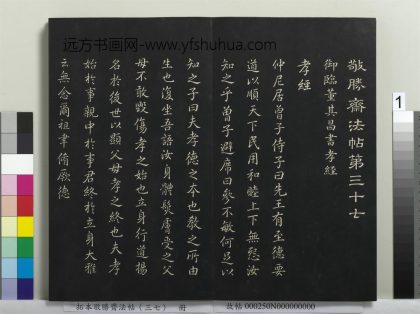 远方书画网-www.yfshuhua.com
敬勝齋法帖第三十七
御臨董其昌書孝經
孝經
仲尼居曾子侍子曰先王有至德要
道以順天下民用和睦上下無怨汝
知之乎曾子避席曰參不敏何足以
知之子曰夫孝德之本也教之所由
生也復坐吾語汝身體髮膚受之父
母不敢毀傷孝之始也立身行道揚
名於後世以顯父母孝之終也夫孝
始於事親中於事君終於立身大雅
云無念爾祖聿脩厥德
拓本敬勝齋法帖(三七) 冊
故帖 000250N000000000
1